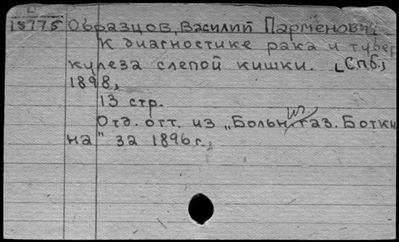 18775 Образцов, Василий Парменович.
К диагностике рака и тубер
кулеза слепой кишки. [Спб.,
1898,
13 стр.
Отд. отт. из „Больн. газ. Ботки
на" за 1896 г.,